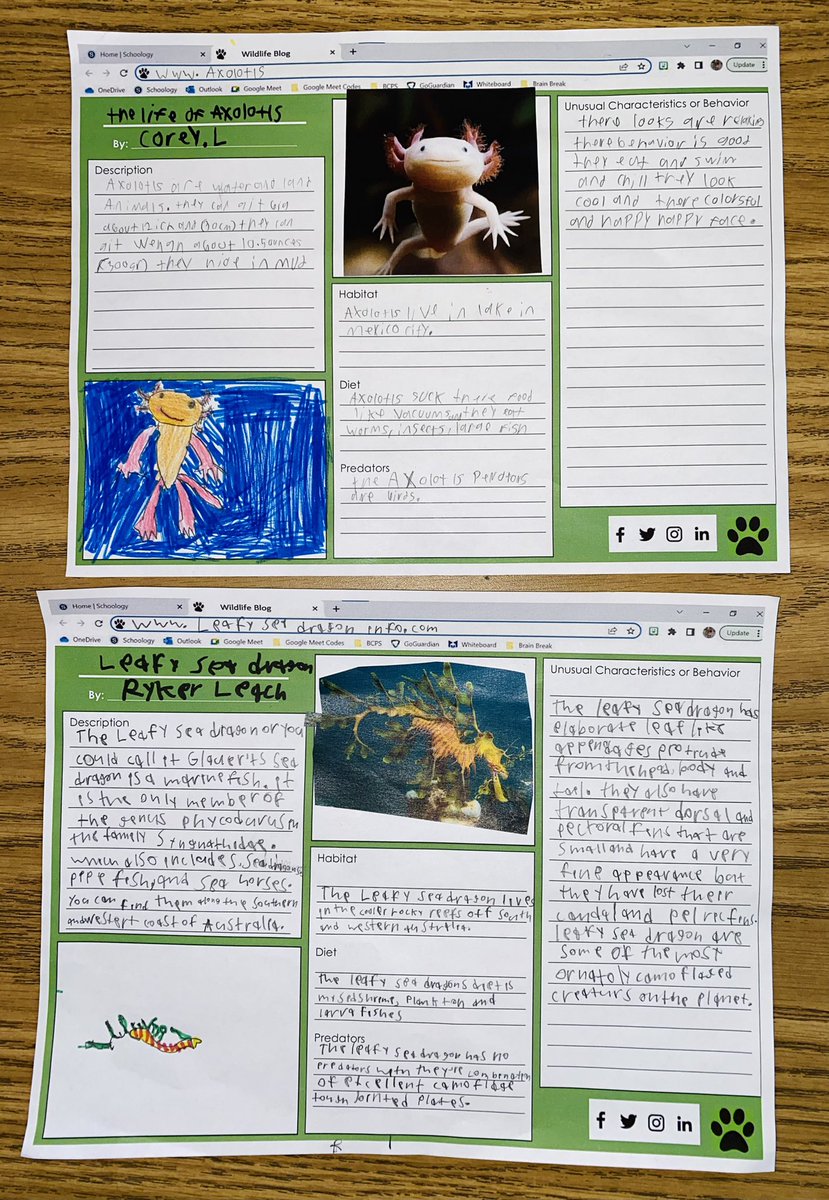 Home | Schoology
Wildlife Blog
www. Axolotls
Update
OneDrive
Schoology
Outlook
Google Meet
Google Meet Codes
BCPS
GoGuardian
Whiteboard
Brain Break
the life of Axolotls
By: Corey. L
Description
Axolotls are water and land
Animals. they can git big
about 12 ich and (30cm) they can
git weigh about 10.5 ounces
(300g) they hide in mud
Habitat
Axolotls live in lake in
mexico city.
Diet
Axolotls suck there food
like vacuums, they eat
worms, insects, large fish
Predators
the Axolotls
are birds.
Unusual Characteristics or Behavior
there looks are relaxing
there behavior is good
they eat and swim
and chill they look
cool and there colorful
and happy happy face.
Home | Schoology
Wildlife Blog
www. Leafy sea dragon info.com
Update
OneDrive
Schoology
Outlook
Google Meet
Google Meet Codes
BCPS
GoGuardian
Whiteboard
Brain Break
Leafy sea dragon
By: Ryker Leach
Description
The Leafy sea dragon or you
could call it Glauert's sea
dragon is a marine fish. it
is the only member of
the genus phycodurus in
the family Syngnathidae.
which also includes, seadragons,
pipe fish, and sea horses.
You can find them along the southern
and western coast of Australia.
Habitat
The Leafy sea dragon lives
in the cooler rocky reefs off south
and western australia.
Diet
the leafy sea dragons diet is
plankton and
larva fishes
Predators
The leafy sea dragon has no
predators with they're combination
of excellent camoflage
tough jointed plates.
Unusual Characteristics or Behavior
The leafy sea dragon has
elaborate leaf like
appengates protrude
from the head, body and
tail. they also have
transparent dorsal and
pectoral fins that are
small and have a very
fine appearance but
they have lost their
caudal and pelvic fins.
leafy sea dragon are
some of the most
ornatoly camoflaged
creaturs on the planet.